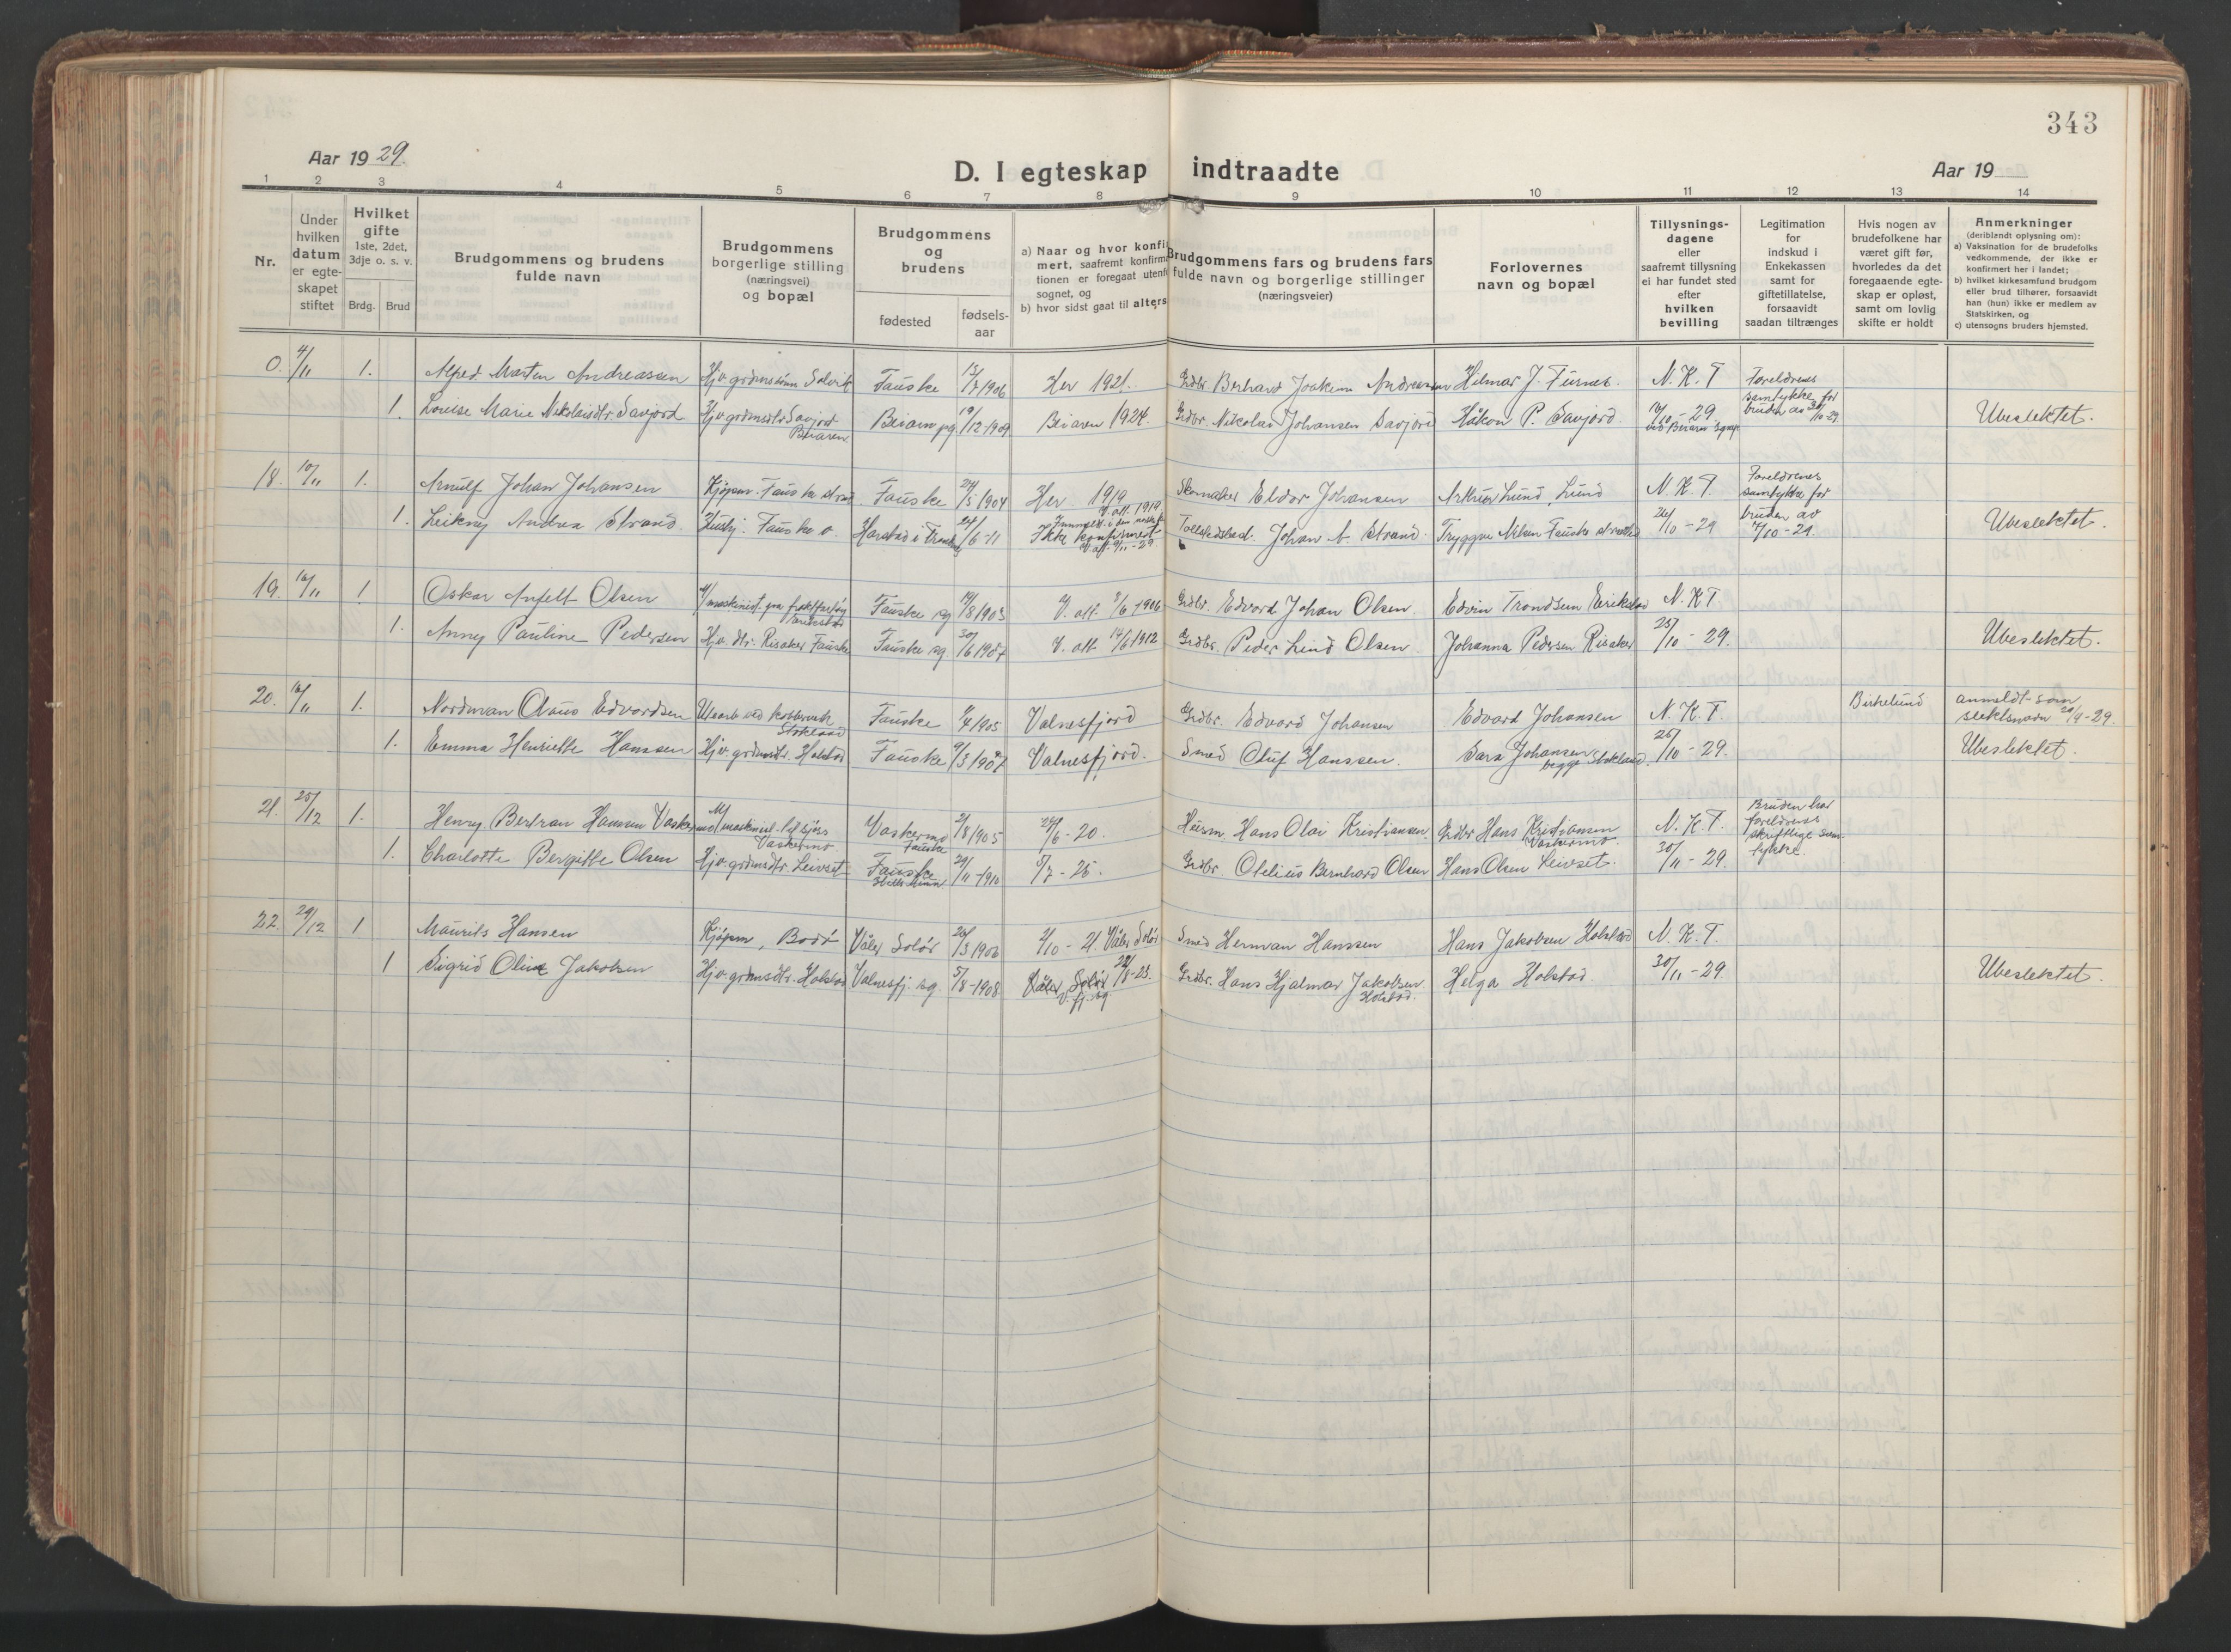 343
Aar 1929.
D. I egteskap indtraadte
Aar 19
1 2 3 4 5 6 7 8 9 10 11 12 13 14
Nr.
Under hvilken datum er egte- skapet stiftet
Hvilket gifte 1ste, 2det, 3dje o. s. v.
Brdg. Brud
Brudgommens og brudens fulde navn
Brudgommens borgerlige stilling (næringsvei) og bopæl
Brudgommens og brudens
fødested
fødsels- aar
a) Naar og hvor konfir mert, saafremt konfirma tionen er foregaat utenfo sognet, og
b) hvor sidst gaat til alters
Brudgommens fars og brudens fars fulde navn og borgerlige stillinger (næringsveier)
Forlovernes navn og bopæl
Tillysnings- dagene eller saafremt tillysning ei har fundet sted efter hvilken bevilling
Legitimation for indskud i Enkekassen samt for giftetillatelse, forsaavidt saadan tiltrænges
Hvis nogen av brudefolkene har været gift før, hvorledes da det foregaaende egte- skap er opløst, samt om lovlig skifte er holdt
Anmerkninger (deriblandt oplysning om):
a) Vaksination for de brudefolks vedkommende, der ikke er konfirmert her i landet;
b) hvilket kirkesamfund brudgom eller brud tilhører, forsaavidt han (hun) ikke er medlem av Statskirken, og
c) utensogns bruders hjemsted.
0. 4/11 1. Alfred Marten Andreassen Hjv. grdmssönn Solvik Fauske 1906 Her 1921. Grdbr. Berhard Joakim Andreassen Hilmar J. Furnes. N. K. T Foreldrenes samtykke for
1. Louise Marie Nikolaisdtr Savjord Hjv grdmsdtr Savjord Beiaren Beiarn pg. 19/12 1909 Beiaren 1924. Grdbr. Nikolai Johansen Savjord Håkon P. Savjord. 19/10 - 29 bruden av Ubeslektet.
18. 10/11 1. Arnulf Johan Johansen Kjöpm. Fauske strand Fauske 24/5 1904 Her 1919 Skomaker Eldor Johansen Arthur Lund, Lund N. K. T. Foreldrenes samtykke for
1. Leikny Andrea Strand. Hushj. Fauske o. Harstad i Troms 24/6-11 Ikke konfirmert V. alt. 9/11-29. Johan A. Strand. Tryggve Nilsen Fauske strand 26/10 - 29 bruden av 17/10-29. Ubeslektet.
19. 16/11 1. Oskar Anfelt Olsen M/maskinist paa fraktfartöy Erikstad Fauske sg 19/8 1903 V. alt. 3/6 1906 Grdbr. Edvard Johan Olsen. Edvin Trondsen Erikstad N. K T
1. Anny Pauline Pedersen Hjv. dtr. Risaker Fauske Fauske sg 30/6 1907 V. alt. 14/6 1912 Grdbr. Peder Lind Olsen. Johanna Pedersen Risaker 25/10 - 29. Ubeslektet.
20. 16/11 1. Nordman Olaus Edvardsen Stokland Fauske 9/4 1905 Valnesfjord Grdbr. Edvard Johansen Edvard Johansen N. K. T. Birkelund anmeldt som slektsnavn 20/9-29.
1. Emma Henriette Hanssen Hjv. grdmsdtr. Holstad Fauske 9/3 1907 Valnesfjord. Smed Oluf Hanssen. Sara Johansen begge Stokland. 26/10 - 29. Ubeslektet.
21. 25/12 1. Henry Bertran Hansen Vaskermo M/maskinist til sjöss Vaskermo Vaskermo Fauske 2/8 1905 27/6 - 20. Husm. Hans Olai Kristiansen Grdbr Hans Kristiansen Vaskermo. N. K. T. Bruden har foreldrenes skriftlige sam-
1. Charlotte Bergitte Olsen Hjv. grdmsdtr. Leivset Fauske 24/11-1910 5/7 - 25. Grdbr. Otelius Bernhard Olsen Hans Olsen Leivset. 30/11 - 29. tykke.
22. 29/12 1 Maurits Hansen Kjöpm, Bodö Våler Solör 26/3 1906 2/10 - 21 Våler Solör Smed Herman Hanssen Hans Jakobsen Holstad N. K. T.
1 Sigrid Oline Jakobsen Hjv. grdmsdtr. Holstad Valnesfj. sg. 5/8-1908. Våler, Solör V. fj. sg 22/8-23. Grdbr. Hans Hjalmar Jakobsen Holstad. Helga Holstad. 30/11 - 29. Ubeslektet.